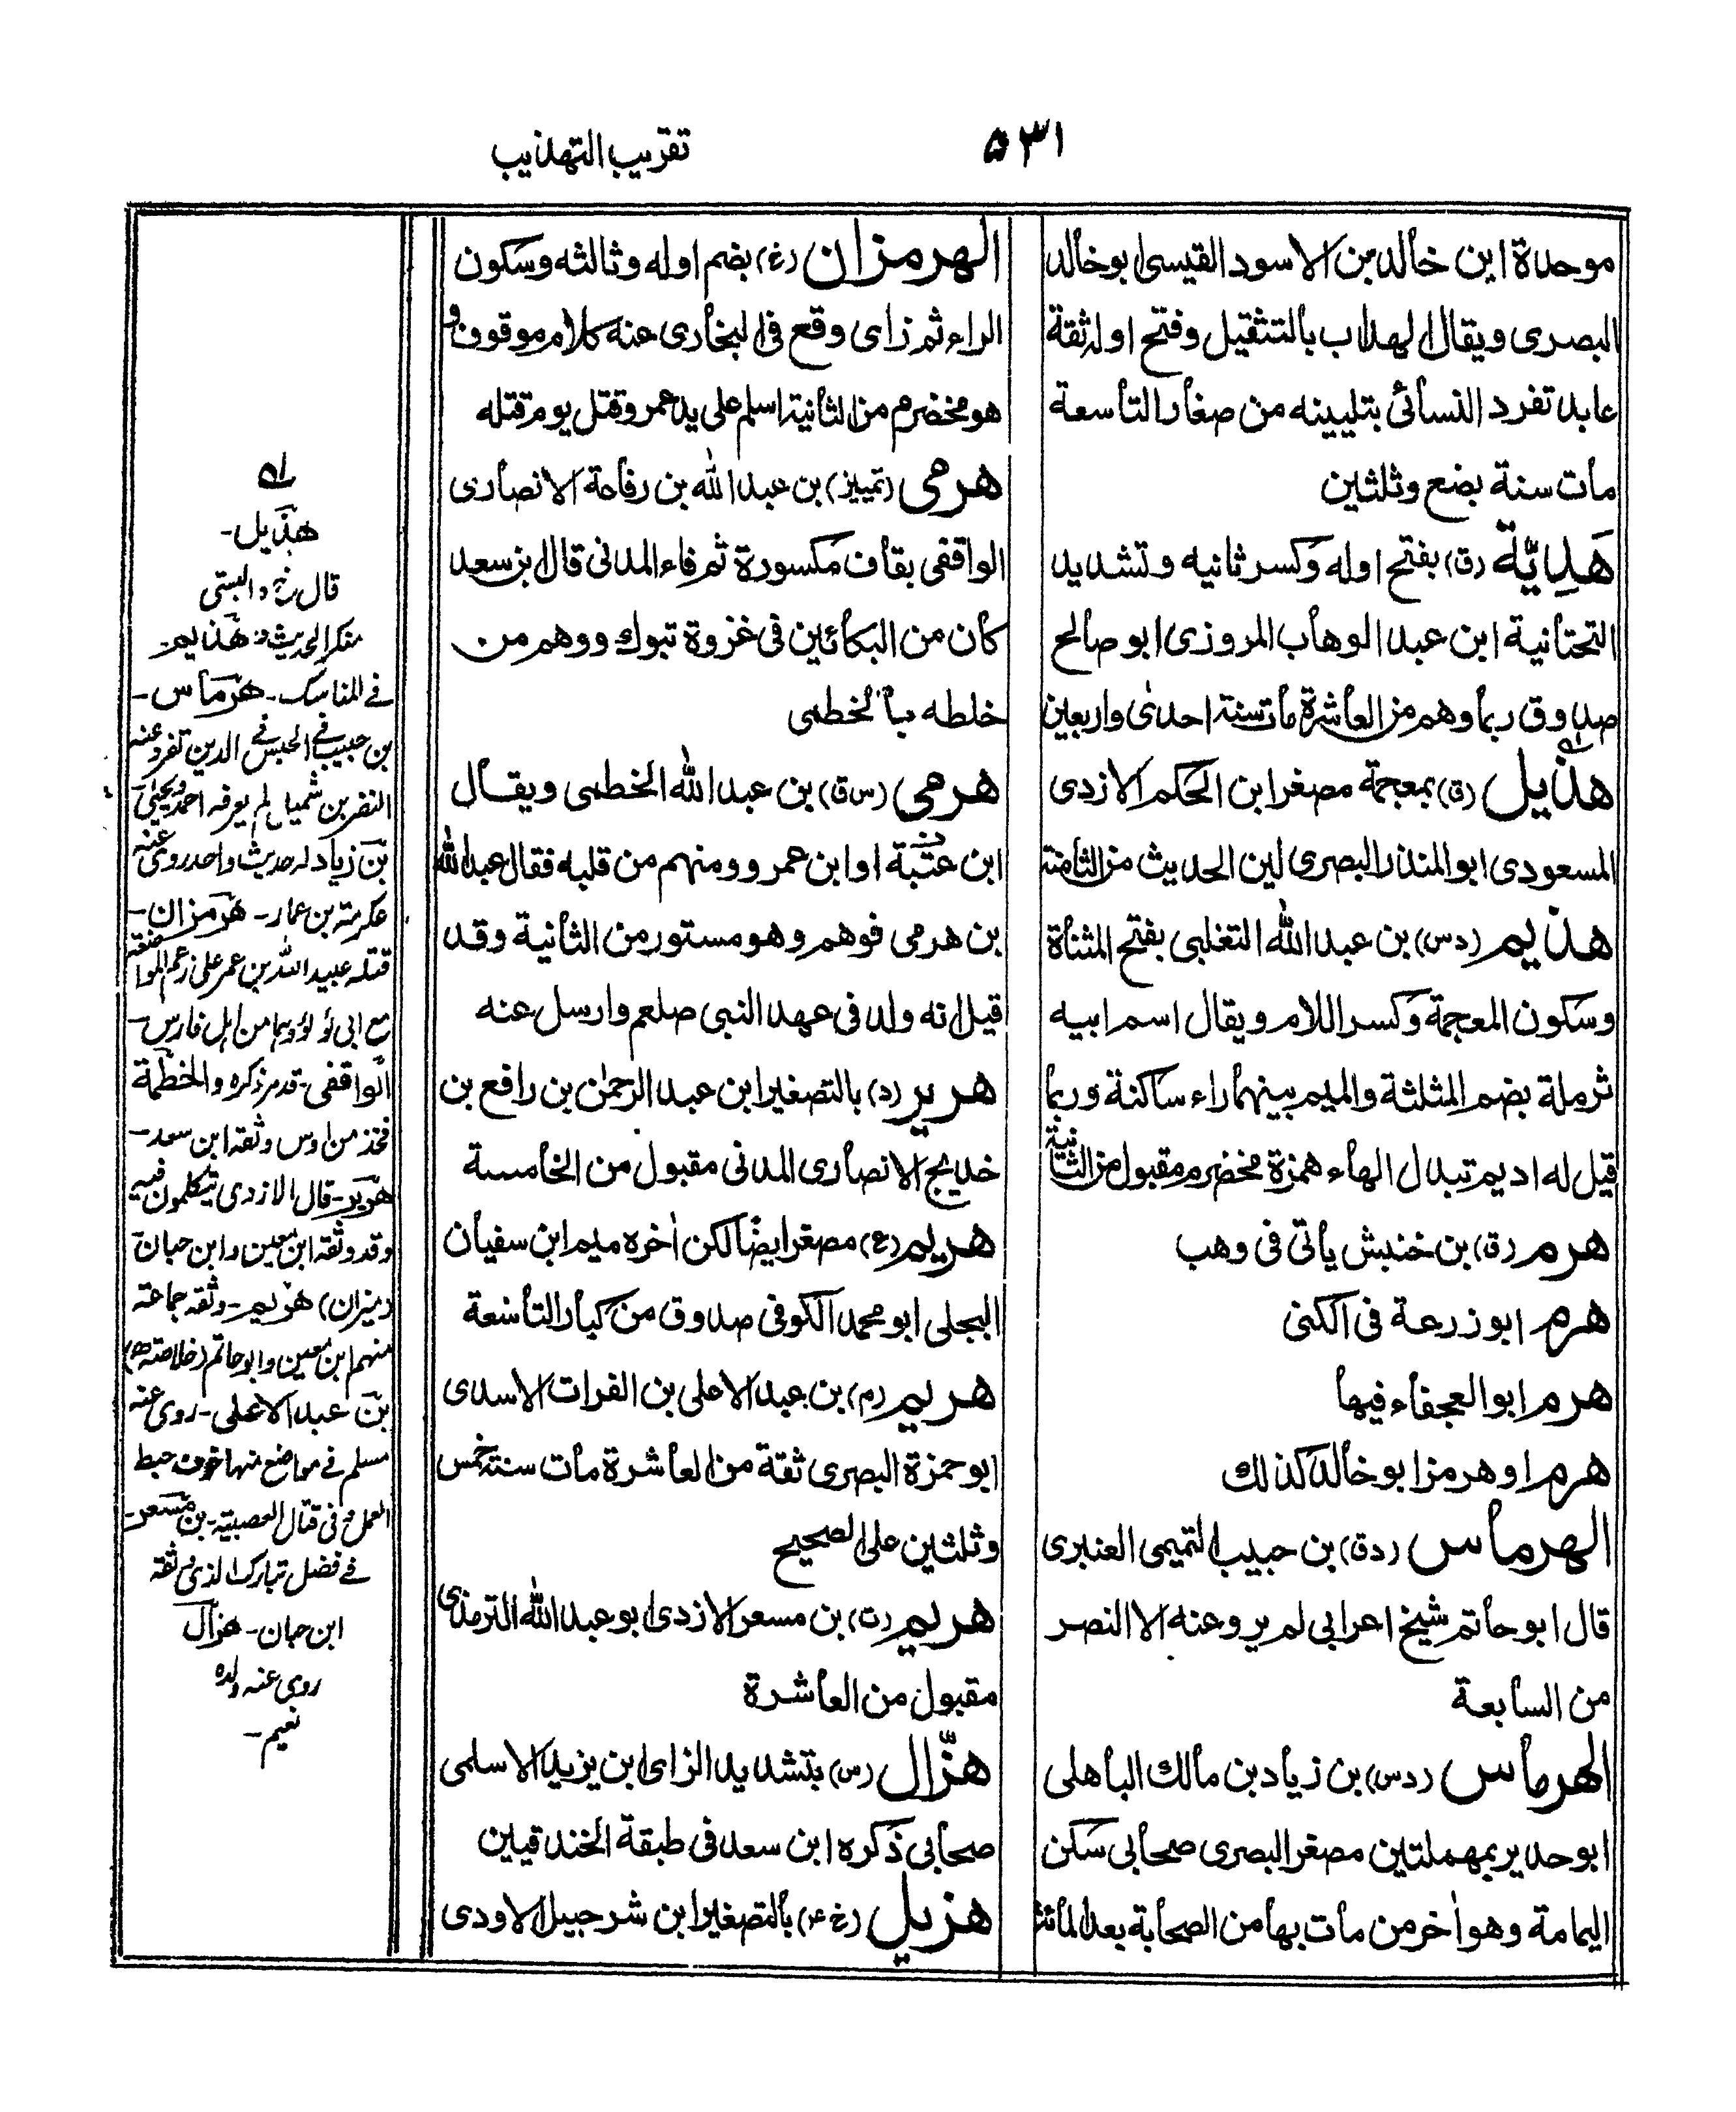 ۵۳۱
تقريب التهذيب
موحدة ابن خالد بن الاسود القيسى ابو خالد
البصرى ويقال الهداب بالتثقيل وفتح اوله ثقة
عابد تفرد النسائى بتليينه من صغار التاسعة
مات سنة بضع وثلثين
هَدِيَّة (ق) بفتح اوله وكسر ثانيه وتشديد
التحتانية ابن عبد الوهاب المروزى ابو صالح
صدوق ربما وهم من العاشرة مات سنة احدىٰ واربعين
هذيل (ق) بمعجمة مصغرا بن الحكم الازدى
المسعودى ابو المنذر البصرى لين الحديث من الثامنة
هذيم (دس) بن عبد الله التغلبى بفتح المثناة
وسكون المعجمة وكسر اللام ويقال اسم ابيه
ثرملة بضم المثلثة والميم بينهما راء ساكنة وربما
قيل له اديم تبدل الهاء همزة مخضرم مقبول من الثانية
هرم (ق) بن خنبش ياتى فى وهب
هرم ابو زرعة فى الكنى
هرم ابو العجفاء فيها
هرم او هرمز ابو خالد كذلك
الهرماس (دق) بن حبيب التميمى العنبرى
قال ابو حاتم شيخ اعرابى لم يرو عنه الا النضر
من السابعة
الهرماس (دس) بن زياد بن مالك الباهلى
ابو حدير بمهملتين مصغر البصرى صحابى سكن
اليمامة وهو اٰخر من مات بها من الصحابة بعد المائة
الهرمزان (خ) بضم اوله وثالثه وسكون
الراء ثم زاى وقع فى البخارى عنه كلام موقوف و
هو مخضرم من الثانية اسلم على يد عمر وقتل يوم قتله
هرمى (تمييز) بن عبد الله بن رفاعة الانصارى
الواقفى بقاف مكسورة ثم فاء المدنى قال ابن سعد
كان من البكائين فى غزوة تبوك ووهم من
خلطه بالخطمى
هرمى (س ق) بن عبد الله الخطمى ويقال
ابن عتبة او ابن عمرو ومنهم من قلبه فقال عبد الله
بن هرمى فوهم وهو مستور من الثانية وقد
قيل انه ولد فى عهد النبى صلعم وارسل عنه
هرير (د) بالتصغير ابن عبد الرحمٰن بن رافع بن
خديج الانصارى المدنى مقبول من الخامسة
هريم (ع) مصغر ايضًا لكن اٰخره ميم ابن سفيان
البجلى ابو محمد الكوفى صدوق من كبار التاسعة
هريم (م) بن عبد الاعلى بن الفرات الاسدى
ابو حمزة البصرى ثقة من العاشرة مات سنة خمس
وثلثين على الصحيح
هريم (ت) بن مسعر الازدى ابو عبد الله الترمذى
مقبول من العاشرة
هزّال (س) بتشديد الزاى ابن يزيد الاسلمى
صحابى ذكره ابن سعد فى طبقة الخندقيين
هزيل (خ ۴) بالتصغير ابن شرحبيل الاودى
هذيل-
منكر الحديث هذيم-
فے المناسك- هرماس-
بن حبيب فے الحبس فے الدين تفرد عنه
النضر بن شميل لم يعرفه احمد ويحيىٰ-
بن زياد له حديث واحد روى عنه
عكرمة بن عمار- هرمزان-
قتله عبيد الله بن عمر على زعم المواضعة
مع ابى لؤلؤ وهما من اهل فارس-
الواقفى- قد مر ذكره والخطمة
فخذ من اوس وثقه ابن سعد-
هرير- قال الازدى يتكلمون فيه
وقد وثقه ابن معين وابن حبان
(ميزان) هريم- وثقه جماعة
منهم ابن معين وابو حاتم (خلاصة)
بن عبد الاعلى- روى عنه
مسلم فے مواضع منها خوف حبط
العمل وفى قتال العصبية- بن مسعر-
فے فضل تبارك الذى ثقه
ابن حبان- هزال
روى عنه ولده
نعيم-